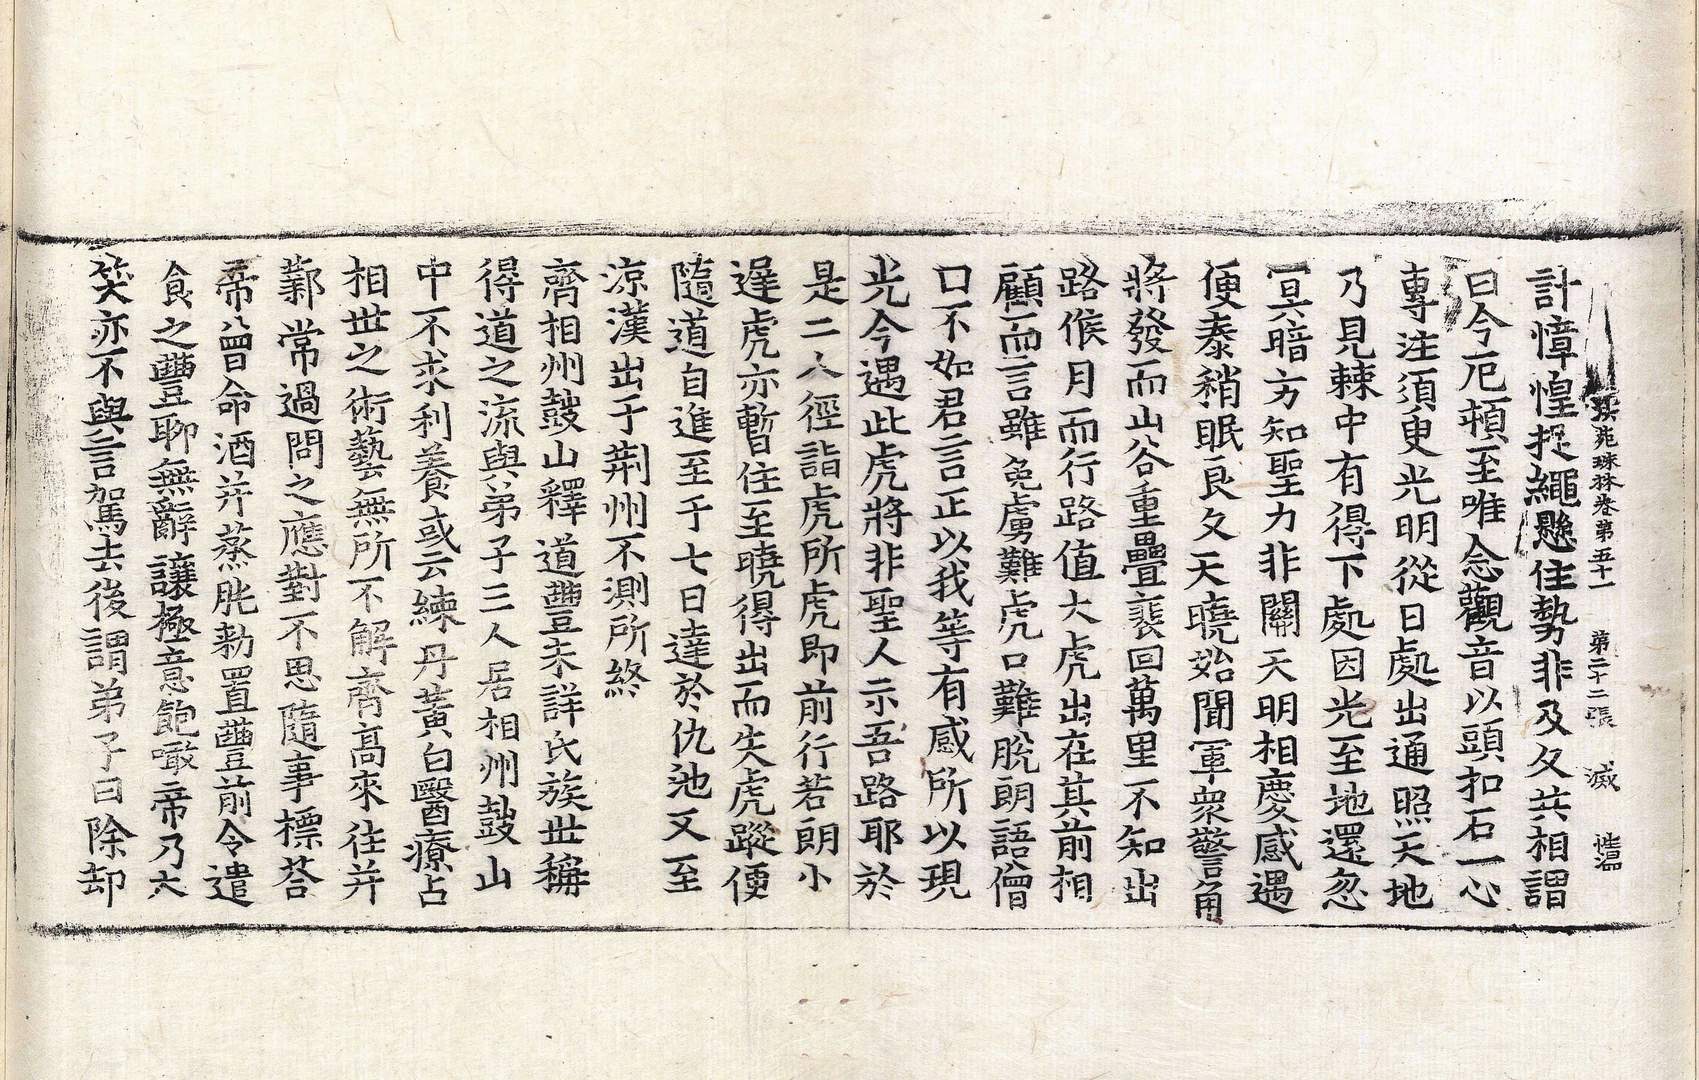 苑珠林卷第五十一 第二十二張 滅
計慞惶捉繩懸住勢非及夂共相謂
曰今厄頓至唯念觀音以頭扣石一心
專注須臾光明從日處出通照天地
乃見棘中有得下處因光至地還忽
冥暗方知聖力非關天明相慶感遇
便泰稍眠良夂天曉始聞軍衆警角
將發而山谷重疊裴回萬里不知出
路候月而行路值大虎出在其前相
顧而言雖免虜難虎口難脫朗語僧
口不如君言正以我等有感所以現
光今遇此虎將非聖人示吾路耶於
是二人徑詣虎所虎即前行若朗小
遲虎亦暫住至曉得出而失虎蹤便
隨道自進至于七日達於仇池又至
涼漢出于荊州不測所終
齊相州鼓山釋道豐未詳氏族世稱
得道之流與弟子三人居相州鼓山
中不求利養或云練丹黃白醫療占
相世之術藝無所不解齊高來往并
鄴常過問之應對不思隨事標荅
帝曾命酒并蒸肫勑置豐前令遣
食之豐聊無辭讓極意飽噉帝乃大
笑亦不與言駕去後謂弟子曰除却